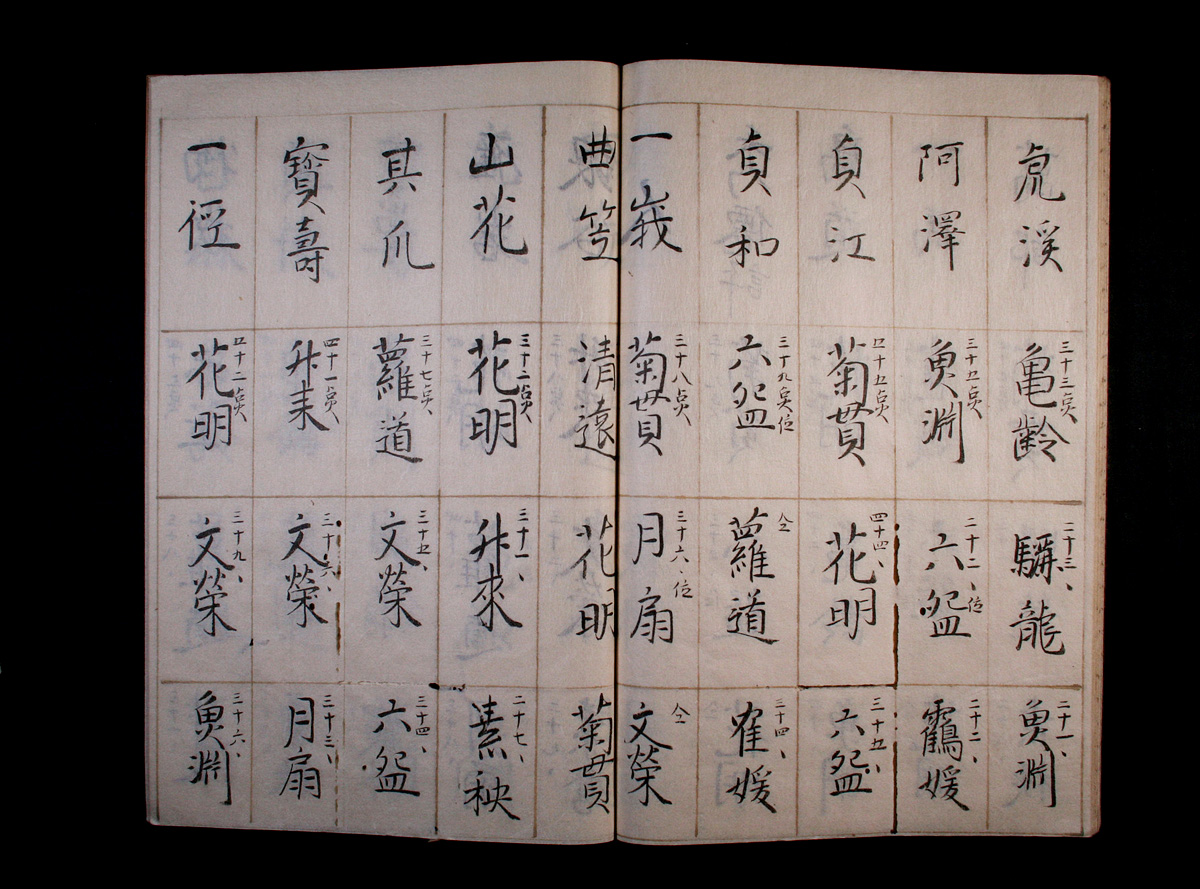 虎溪
三十三点
亀齢
二十三、
驪龍
二十一、
魚淵
阿澤
三十五点
魚淵
二十二、位
六盌
二十二、
靏媛
貞江
四十五点
菊貫
四十四、
花明
三十五、
六盌
貞和
三十九点位
六盌
仝
蘿道
三十四、
寉媛
一峩
三十八点
菊貫
三十六、位
月扇
仝
文榮
曲笠
清遠
花明
菊貫
山花
三十二点
花明
三十一、
升來
二十七、
素秧
其爪
三十七点
蘿道
三十五、
文榮
三十四、
六盌
寳壽
四十一点
升来
三十六、
文榮
三十三、
月扇
一徑
四十二点
花明
三十九、
文榮
三十六、
魚淵